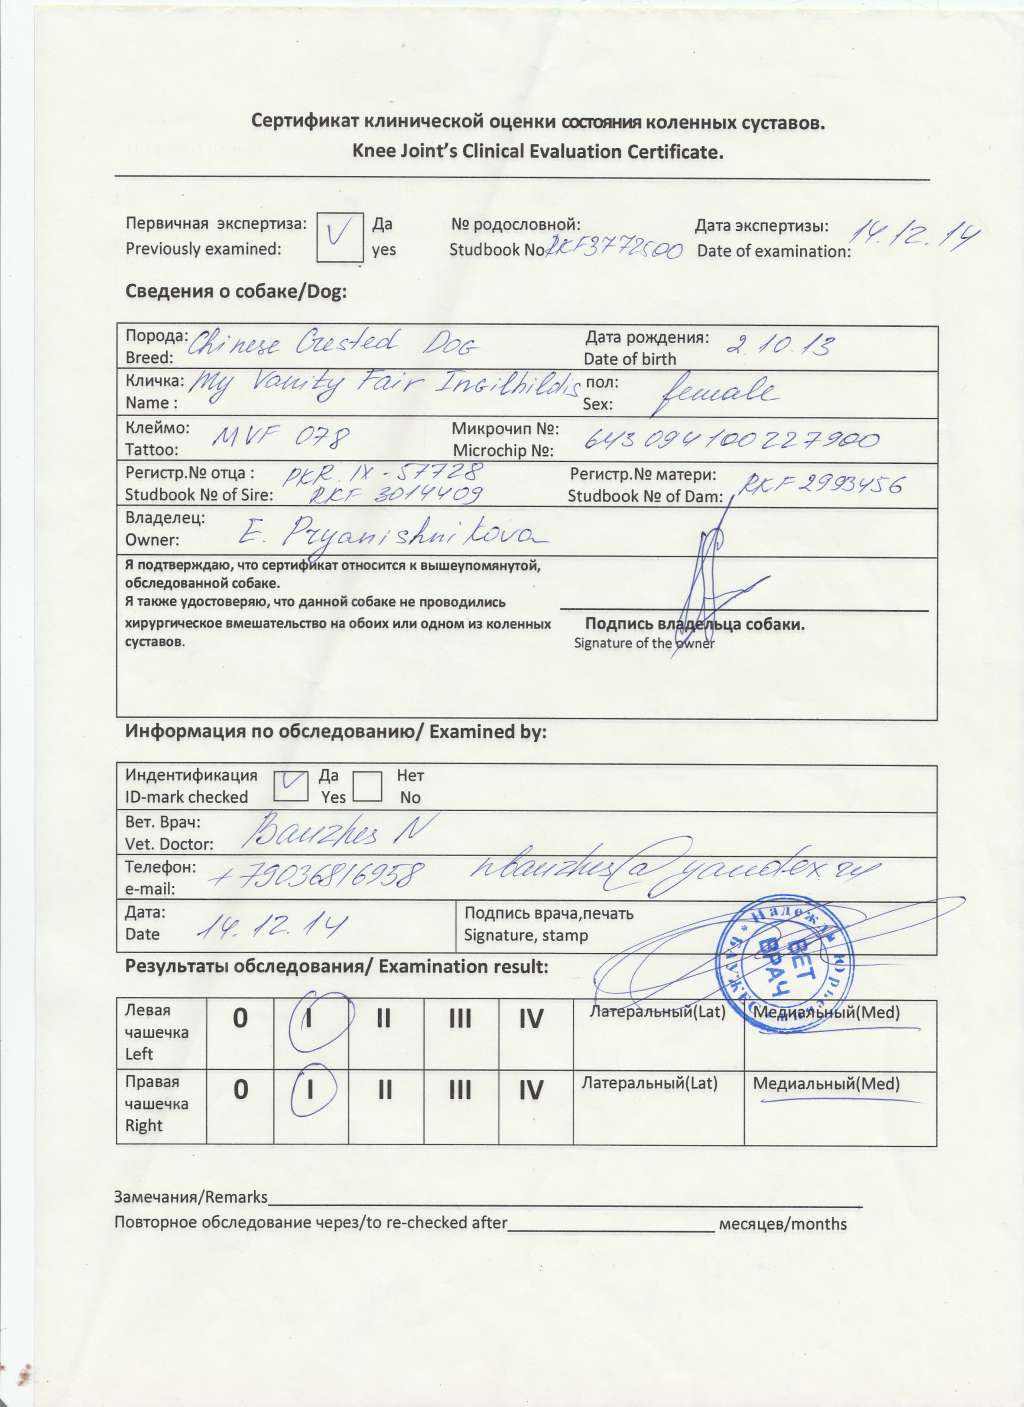 Сертификат клинической оценки состояния коленных суставов.
Knee Joint's Clinical Evaluation Certificate.
Первичная экспертиза: Да № родословной: Дата экспертизы: 14.12.14
Previously examined: yes Studbook No RKF3772500 Date of examination:
Сведения о собаке/Dog:
Порода: Chinese Crested Dog Дата рождения: 2.10.13
Breed: Date of birth
Кличка: My Vanity Fair Ingilhildis пол: female
Name : Sex:
Клеймо: MVF 078 Микрочип №: 643094100227900
Tattoo: Microchip №:
Регистр.№ отца : PKR. IX-57728 Регистр.№ матери: RKF 2993456
Studbook № of Sire: RKF 3014409 Studbook № of Dam:
Владелец:
Owner: E. Pryanishnikova
Я подтверждаю, что сертификат относится к вышеупомянутой,
обследованной собаке.
Я также удостоверяю, что данной собаке не проводились
хирургическое вмешательство на обоих или одном из коленных Подпись владельца собаки.
суставов. Signature of the owner
Информация по обследованию/ Examined by:
Индентификация Да Нет
ID-mark checked Yes No
Вет. Врач: Banzhes N
Vet. Doctor:
Телефон: +79036816958 nbanzhes@yandex.ru
e-mail:
Дата: 14.12.14 Подпись врача,печать
Date Signature, stamp
Надежда Юрьевна
ВЕТ
ВРАЧ
Результаты обследования/ Examination result:
Левая 0 I II III IV Латеральный(Lat) Медиальный(Med)
чашечка
Left
Правая 0 I II III IV Латеральный(Lat) Медиальный(Med)
чашечка
Right
Замечания/Remarks
Повторное обследование через/to re-checked after месяцев/months